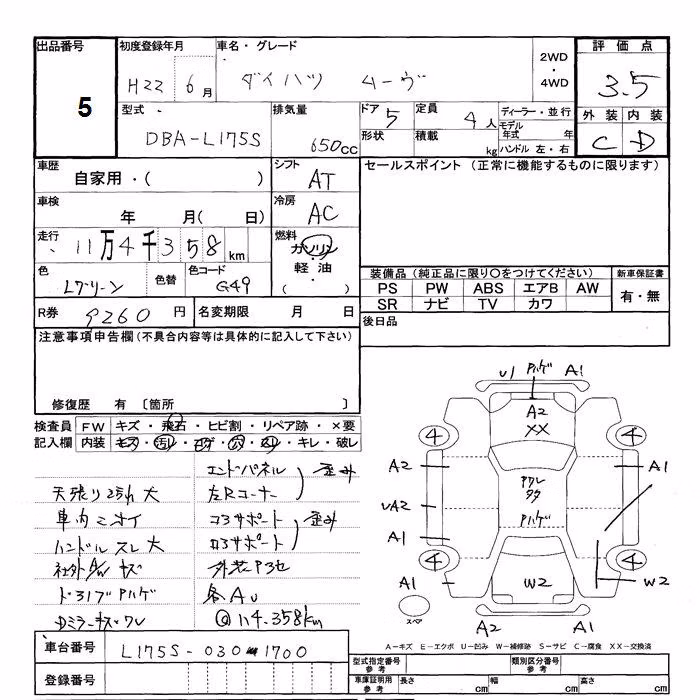 出品番号 初度登録年月 車名・グレード 2WD・4WD 評価点
5 H22 6月 ダイハツ ムーヴ 3.5
型式 排気量 ドア 5 定員 4人 ディーラー・並行 外装 内装
DBA-L175S 650cc 形状 積載 kg モデル年式 年 C D
ハンドル 左・右
車歴 シフト セールスポイント (正常に機能するものに限ります)
自家用・( ) AT
車検 冷房
年 月( 日) AC
走行 燃料
11万4千358km ガソリン・軽油・( )
色 色替 色コード 装備品(純正品に限り○をつけてください) 新車保証書
Lグリーン G49 PS PW ABS エアB AW 有・無
SR ナビ TV カワ
R券 9260円 名変期限 月 日 後日品
注意事項申告欄(不具合内容等は具体的に記入して下さい)
修復歴 有 〔箇所 〕
検査員 FW キズ・飛石・ヒビ割・リペア跡・×要
記入欄 内装 キズ・汚レ・コゲ・穴・スレ・キレ・破レ
エンドパネル 歪み
天張り 大 左Rコーナー
車内ニオイ コアサポート 歪み
ハンドルスレ大 ロアサポート
社外AW キズ
各AU
114.358km
U1 Pハゲ A1
A2
XX
4 4
A2 A1
UA2
Pハゲ
A1
4 4
A1 W2 W2
スペア
A2 A1
A=キズ E=エクボ U=凹み W=補修跡 S=サビ C=腐食 XX=交換済
車台番号 L175S-030 1700
登録番号
型式指定番号 参考 類別区分番号 参考
車庫証明用 参考 長さ cm 幅 cm 高さ cm